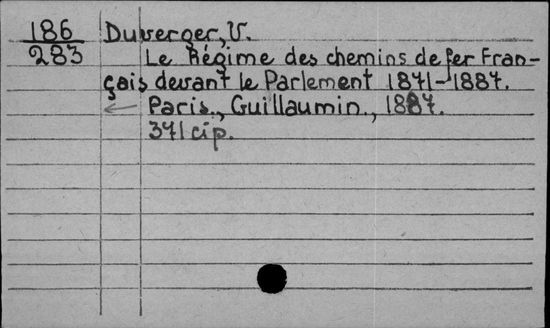 186 Duverger, V.
283 Le Régime des chemins de fer Fran-
çais devant le Parlement 1871-1887.
Paris., Guillaumin., 1887.
371 стр.